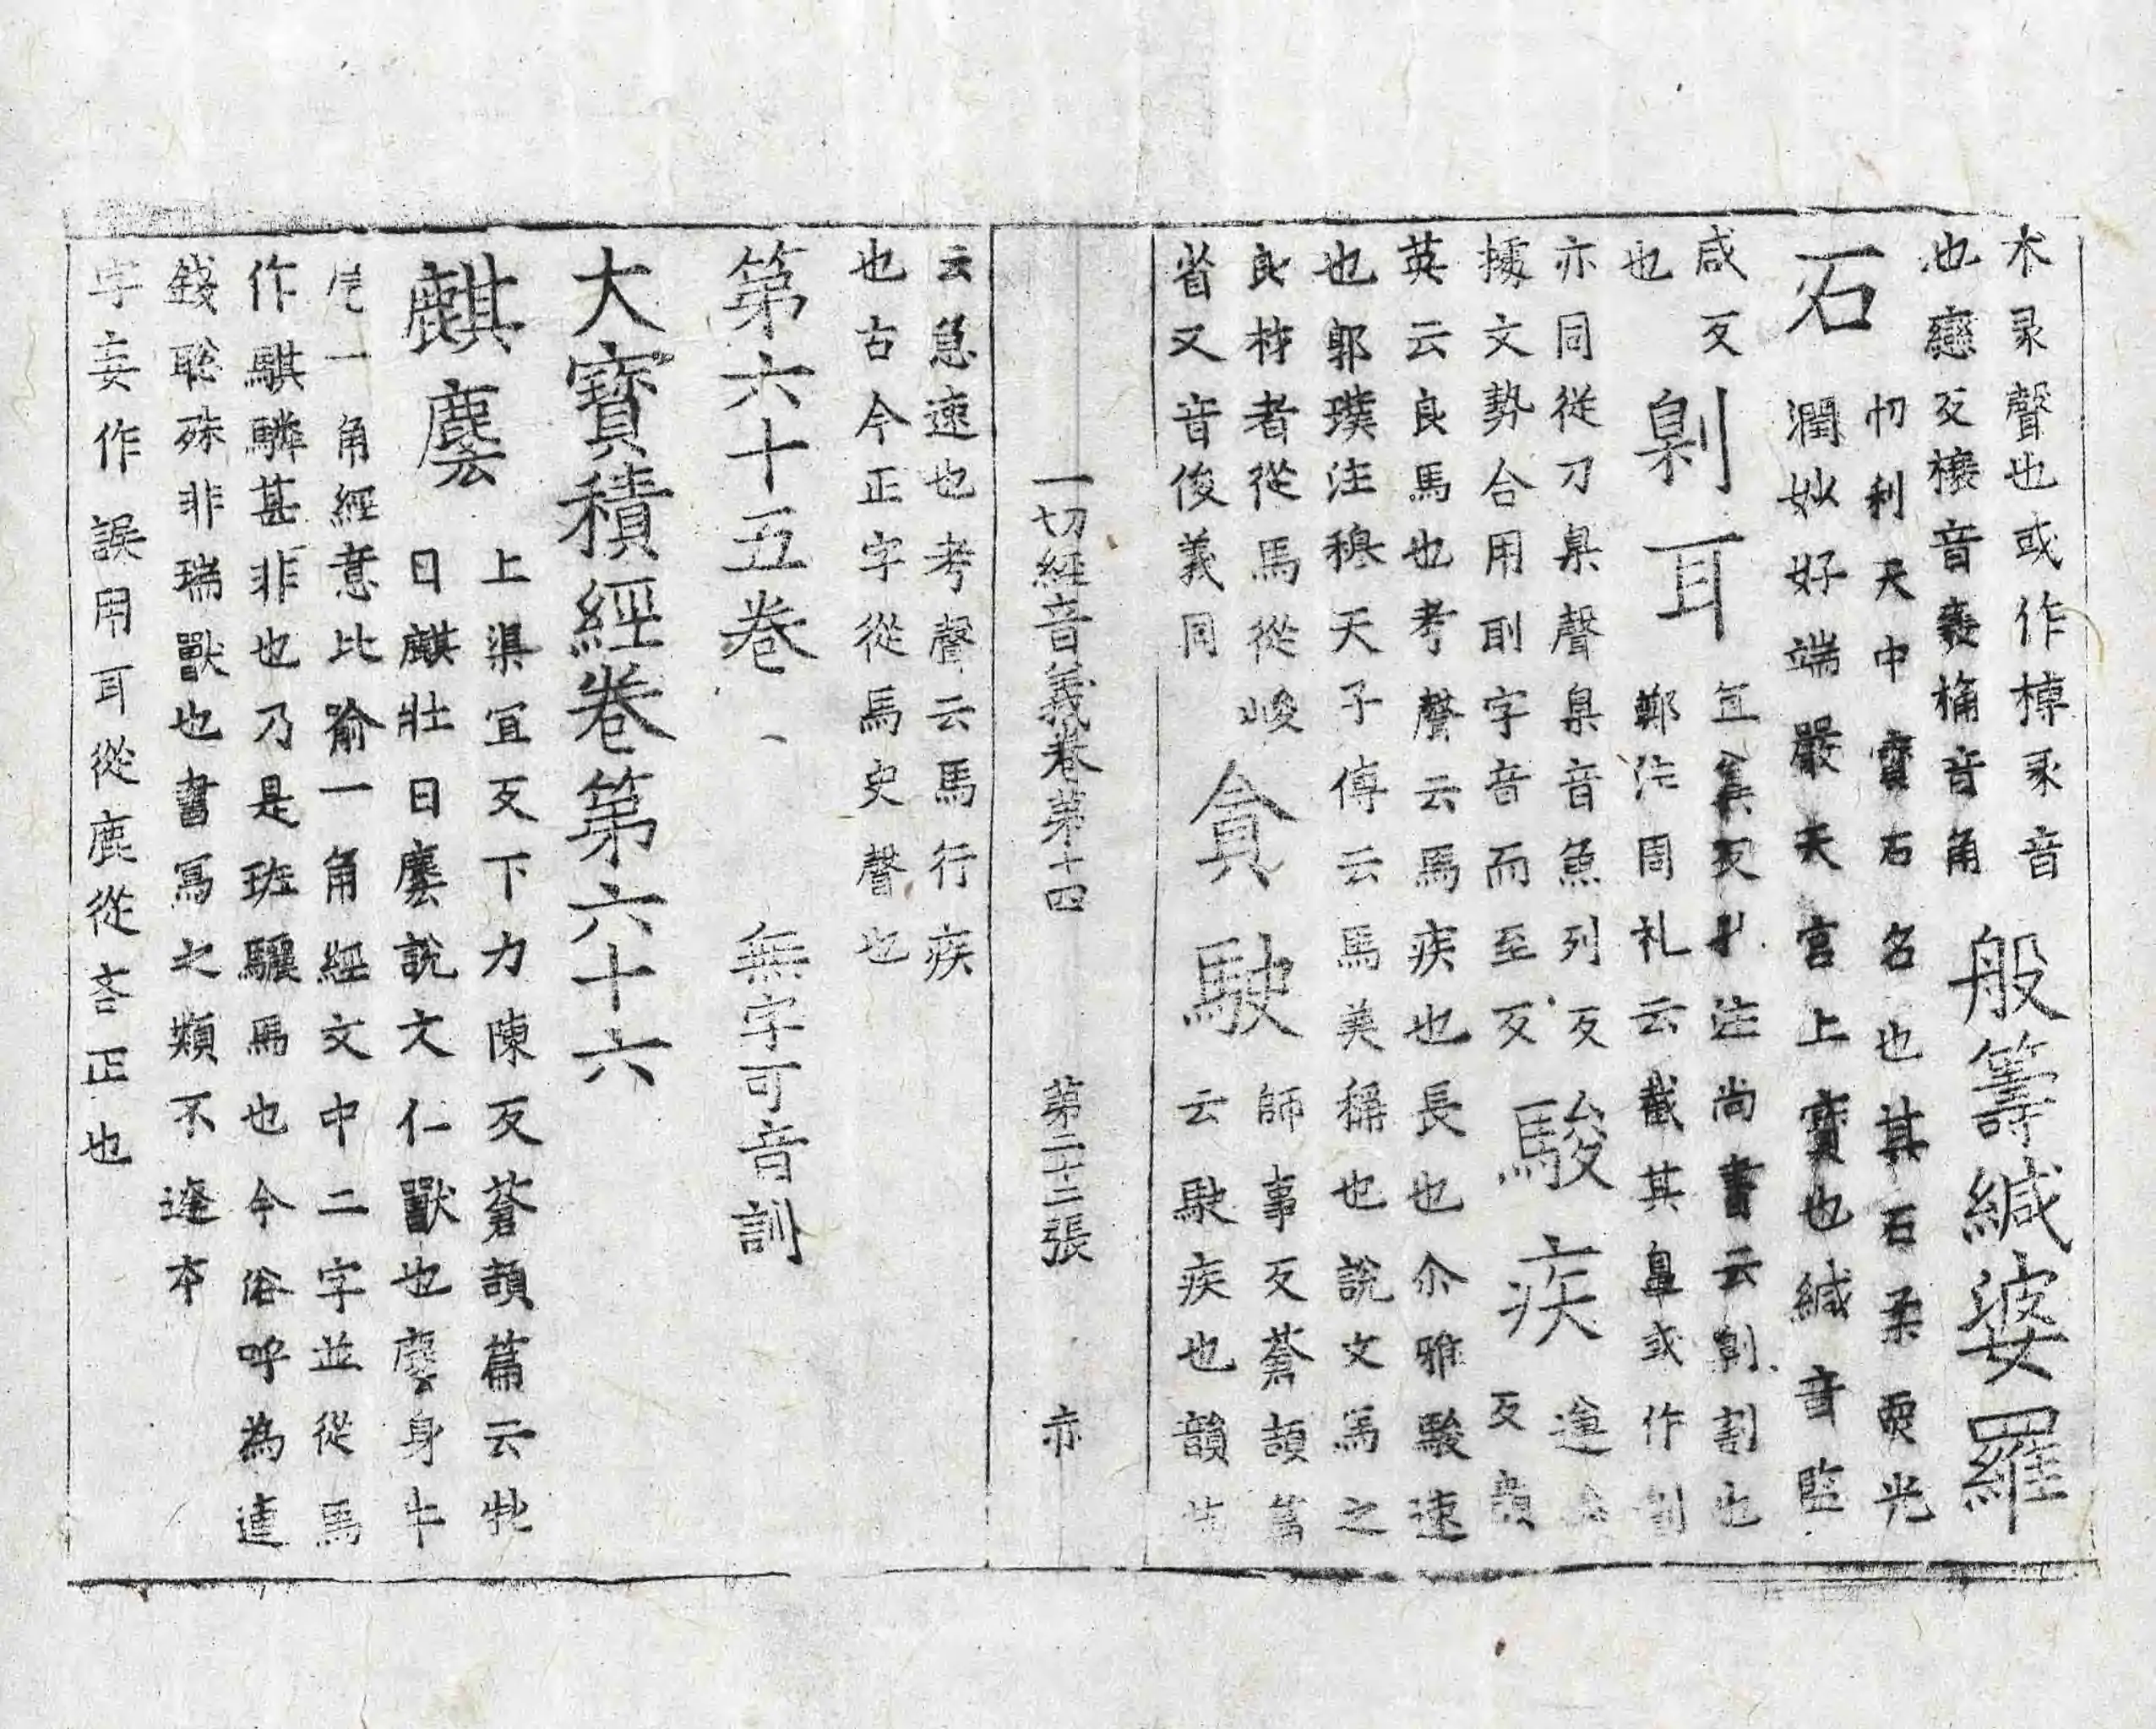 木彖聲也或作槫豕音
也戀反欀音襄桷音角
般籌緘婆羅
忉利天中寶石名也其石柔耎光
石
潤妙好端嚴天宮上寶也緘音監
咸反
也
劓耳
宜器反孔注尚書云劓割也
鄭注周礼云截其鼻或作劓
亦同從刀臬聲臬音魚列反
據文勢合用刵字音而至反
駿疾
遵
反韻
英云良馬也考聲云馬疾也長也尒雅駿速
也郭璞注穆天子傳云馬美稱也說文馬之
良材者從馬從峻
省又音俊義同
貪駛
師事反蒼頡篇
云駛疾也韻
一切經音義卷第十四 第二十二張 亦
云急速也考聲云馬行疾
也古今正字從馬史聲也
第六十五卷 無字可音訓
大寶積經卷第六十六
麒麐
上渠宜反下力陳反蒼頡篇云牝
曰麒牡曰麐說文仁獸也麐身牛
尾一角經意比喻一角經文中二字並從馬
作騏驎甚非也乃是班驪馬也今俗呼為連
錢驄殊非瑞獸也書寫之類不達本
字妄作誤用耳從鹿從吝正也